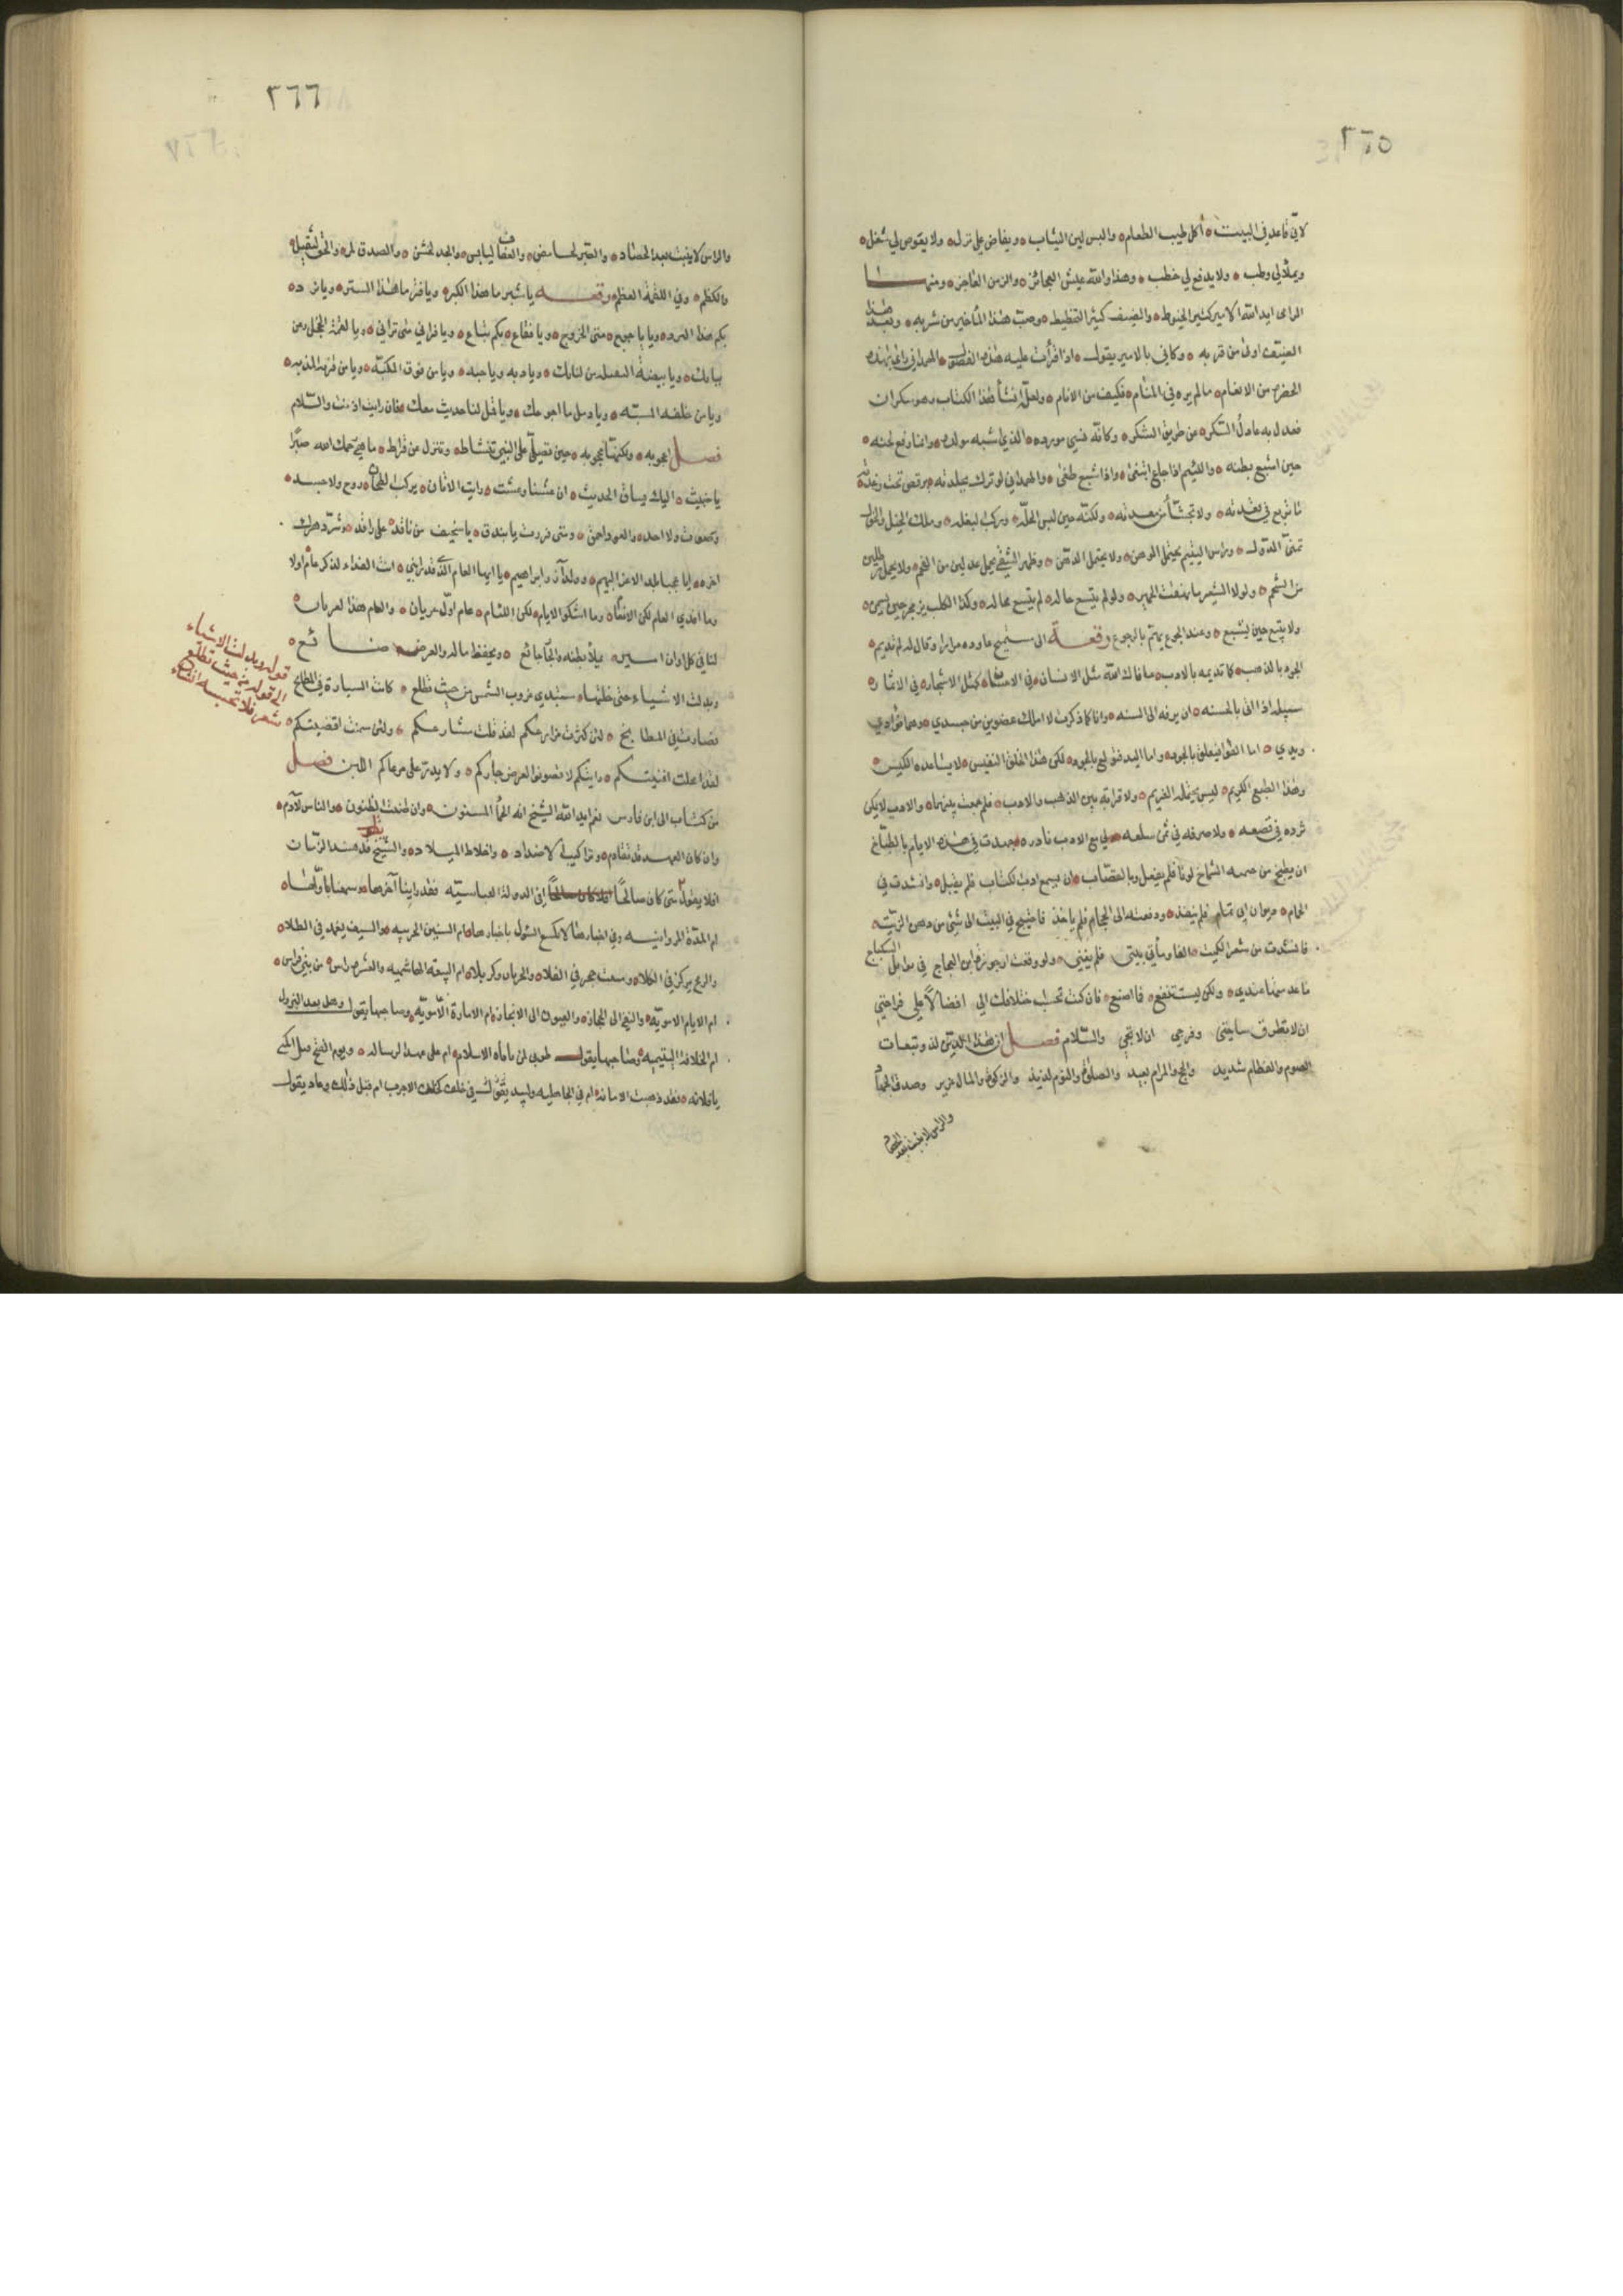 ٢٦٥
لاني قاعد في البيت ه آكل طيب الطعام ه والبس لين الثياب ه ويفاض علي نزل ه ولا يفوض لي شغل ه
ويملأ لي وطب ه ولا يدفع لي خطب ه وهذا والله عيش العجائز ه والزمن العاجز ه ومنها
الراى ايد الله الامير كثير الخبوط ه والضيف كثير التخليط ه وصب هذا المآء خير من شربه ه وبعد هذا
العنيف اولى من قربه ه وكاني بالامير يقول ه اذا قرأت عليه هذه الفصول ه الهمداني راى بهذه
الحضرة من الانعام ه ما لم يره في المنام ه فكيف من الانام ه ولعله انشأ هذا الكتاب وهو سكران
فعدل به عادل السكر ه عن طريق الشكر ه وكانه نسي مورده ه الذي اشبه مولده ه وانما رفع لحنه ه
حين اشبع بطنه ه واللئيم اذا جاع ابتغى ه واذا شبع طغى ه والهمداني لو ترك بجلدته ه يرقص تحت رعدته
ما تربع في بعدته ه ولا تجشأ من معدته ه ولكنه حين لبس الحلة ه وركب البغلة ه وملك الخيل والخول
تمنى الدول ه وراس اليتيم يحتمل الوهن ه ولا يحتمل الدهن ه وظهر الشقي يحمل عدلين من الفحم ه ولا يحمل رطلين
من الشحم ه ولولا الشعير ما نهقت الحمير ه ولو لم يتسع حاله ه لم يتسع مجاله ه وكذا الكلب يزمجر حين يسمن ه
ولا يتبع حين يشبع ه وعند الجوع يهتم بالرجوع رقعة الى مستميح عاوده مرارا وقال له لم لا تديم ه
الجود بالذهب ه كما تديمه بالادب ه عافاك الله مثل الانسان ه في الاحسان ه كمثل الاشجار ه في الاثمار ه
سبيله اذا اتى بالحسنة ه ان يرفه الى السنة ه وانا كما ذكرت لا املك عضوين من جسدي ه وهما فؤادي
ويدي ه اما الفؤاد فيعلق بالجود ه واما اليد فتولع بالجود ه لكن هذا الخلق النفيس ه لا يساعده الكيس ه
وهذا الطبع الكريم ه ليس يحتمله الغريم ه ولا قرابة بين الذهب والادب ه فلم جمعت بينهما ه والادب لا يمكن
ثرده في قصعة ه ولا صرفه في ثمن سلعة ه ولي مع الادب نادرة ه جهدت في هذه الايام بالطباخ
ان يطبخ من جيمية الشماخ لونا فلم يفعل وبالقصاب ه ان يسمع ادب الكتاب فلم يقبل ه وانشدت في
الحمام ه ديوان ابي تمام فلم ينفذ ه ودفعته الى الحجام فلم ياخذ فاحتيج في البيت الى شيء من دهن الزيت ه
فانشدت من شعر الكميت ه الفا ومأتي بيت فلم يغني ه ولو وقعت ارجوزة ابن العجاج في توابل السكباج
ما عدمتها عندي ه ولكن ليست تنفع ه فما اصنع ه فان كنت تحسب اختلافك الي افضالا علي فراحتي
ان لا تطرق ساحتي وفرجي ان لا تجي والسلام فصل ان هذا الدين لذو تبعات
الصوم والفطام شديد والحج والمرام بعيد والصلوة والنوم لذيذ والزكوة والمال عزيز وصدق الجهاد
والراس لا ينبت بعد الحصاد
٢٦٦
والراس لا ينبت بعد الحصاد ه والصبر الحامض ه والعفاف اليابس ه والجد الخشن ه والصدق المر ه والحق الثقيل ه
والكظم ه وفي اللقمة العظم رقعه يا شبر ما هذا الكبر ه ويا فتر ما هذا الستر ه ويا قرد ه
بكم هذا البرد ه ويا ياجوج ه متى الخروج ه ويا فقاع ه بكم تباع ه ويا فراني متى تراني ه ويا لقمة الخجل ومن
ببابك ه ويا بيضة النعل من لنابك ه ويا دبه ويا حبه ه ويا من فوق المكبه ه ويا من فرفنه المذبه ه
ويا من خلفه المسبه ه ويا دمل ما اوجعك ه ويا قمل لنا حديث معك ه فان رايت اذنت والسلام
فصل اعجوبه ه ولكنها محجوبه ه حين تقيلي على البين تنشاط ه وتنزل من قراط ه ما هي رحمك الله صبرا
يا خبيث ه اليك يساق الحديث ه ان عشنا وعشت ه رايت الاتان ه يركب الطحان ه روح ولا جسد ه
وصوت ولا احد ه والعود احمق ه ومتى فرزنت يا بيدق ه يا سخيف من ناقد على راقد ه وشر دهرك
اخره ه ايا عجبا يلد الاغر البهيم ه وولد آزر ابراهيم ه يا ايها العام الذي قد رابني ه انت الفداء لذكر عام اولا
وما افدي العام لكن الانسان ه وما اشكو الايام لكن اللئام ه عام اول عربان ه والعام هذا العربان ه
لنا في كل اوان امير ه يملأ بطنه والجار جائع ه ويحفظ ماله والعرض ضائع ه
وبدلت الاشياء حتى خلتها ه ستبدي غروب الشمس من حيث تطلع ه كانت السيارة في المطالع
فصارت في المطابخ ه لئن كثرت مزارعكم لقد قلت مشارعكم ه ولئن سمنت اقضيتكم ه
لقد اعلت افنيتكم ه رايتكم لا يصون العرض جاركم ه ولا يدر على مرعاكم اللبن فصل
من كتاب الى ابن فارس نعم ايد الله الشيخ انه الحمأ المسنون ه وان ظنت الظنون ه والناس لآدم ه
وان كان العهد قد تقادم ه وتراكبت الاضداد ه واختلط الميلاد ه والشيخ يقول فسد الزمان
افلا يقول متى كان صالحا أفي الدولة العباسية فقد راينا آخرها ه وسمعنا باولها ه
ام المدة المروانيه وفي اخبارها لا تكسع الشول باغبارها ه ام السنين الحربيه ه والسيف يغمد في الطلا ه
والرمح يركز في الكلا ه ومبيت حجر في الفلا ه والحربان وكربلا ه ام البيعة الهاشمية والعشرة براس ه من بني فراس ه
ام الايام الاموية ه والنفير الى الحجاز ه والعيون الى الاعجاز ه ام الامارة الاموية ه وصاحبها يقول وهل بعد البزول
ام الخلافة التيمية ه وصاحبها يقول طوبى لمن مات في نأنأة الاسلام ه ام على عهد الرسالة ه ويوم الفتح قيل اسكتي
يا فلانه ه فقد ذهبت الامانة ه ام في الجاهليه ولبيد يقول في خلف كجلد الاجرب ام قبل ذلك وعاد يقول
قوله وبدلت الاشياء
الى قوله من حيث تطلع
شعر فلا تحسبه انشاء